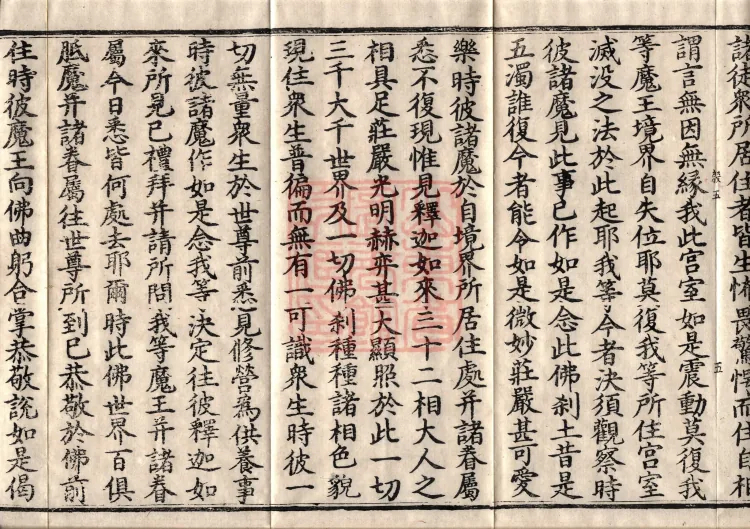 諸徒衆所居住者皆生怖畏驚愕而住自相
謂言無因無緣我此宫室如是震動莫復我
等魔王境界自失位耶莫復我等所住宫室
滅没之法於此起耶我等今者決須觀察時
彼諸魔見此事已作如是念此佛刹土昔是
五濁誰復今者能令如是微妙莊嚴甚可愛
樂時彼諸魔於自境界所居住處并諸眷屬
悉不復現惟見釋迦如來三十二相大人之
相具足莊嚴光明赫弈甚大顯照於此一切
三千大千世界及一切佛刹種種諸相色貌
現住衆生普徧而無有一可識衆生時彼一
切無量衆生於世尊前悉見修營爲供養事
時彼諸魔作如是念我等決定往彼釋迦如
來所見已禮拜并請所問我等魔王并諸眷
屬今日悉皆何處去耶爾時此佛世界百俱
胝魔并諸眷屬往世尊所到已恭敬於佛前
住時彼魔王向佛曲躬合掌恭敬說如是偈
五